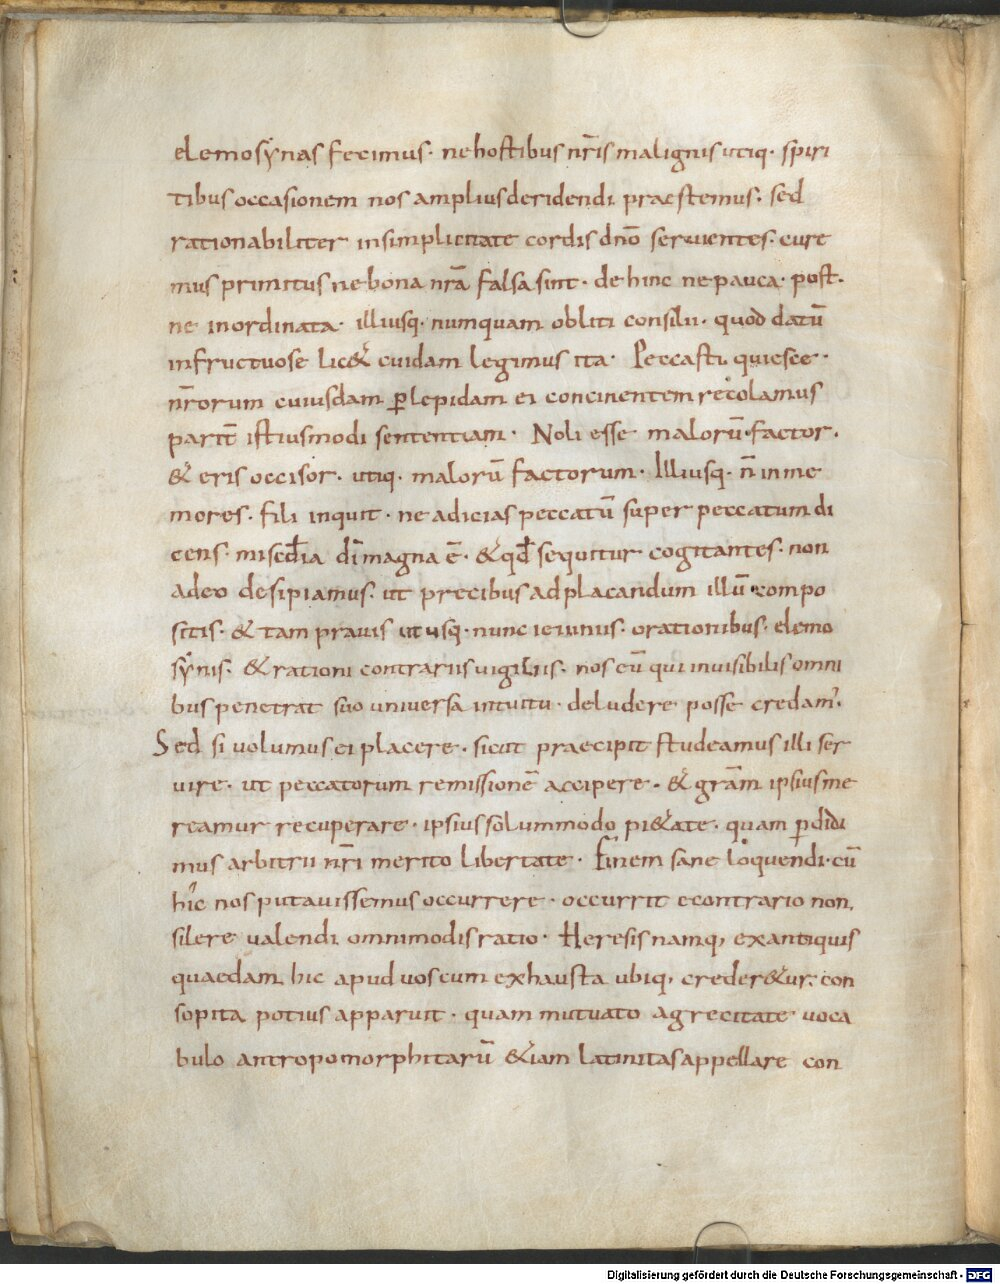 elemosynas fecimus· ne hostibus nr̄is malignis utiq· spiri
tibus occasionem nos amplius deridendi praestemus· sed
rationabiliter in simplicitate cordis dn̄o seruientes· cure
mus primitus ne bona nr̄a falsa sint· dehinc ne pauca· post·
ne inordinata· illiusq· numquam obliti consilii· quod datū
infructuose lic& cuidam legimus ita· Peccasti quiesce·
nr̄orum cuiusdam p̱lepidam ei concinentem recolamus
parit̄ istiusmodi sententiam· Noli esse malorū factor·
& eris occisor· utiq· malorū factorum· Illiusq· n̄ inme
mores· fili inquit· ne adicias peccatū super peccatum di
cens· misc̄dia dī magna ē· & qđ sequitur cogitantes· non
adeo desipiamus· ut precibus ad placandum illū compo
sitis· & tam prauis utusq· nunc ieiuniis· orationibus· elemo
synis· & rationi contrariis uigiliis· nos eū qui inuisibilis omni
bus penetrat suo universa intuitu· deludere posse credam̄·
Sed si uolumus ei placere· sicut praecipit studeamus illi ser
uire· ut peccatorum remissionē accipere· & grām ipsius me
reamur recuperare· ipsius solummodo pi&ate· quam p̱didi
mus arbitrii nr̄i merito libertate· Finem sane loquendi· cū
hic nos putauissemus occurrere· occurrit econtrario non
silere ualendi omnimodis ratio· Heresis namq, ex antiquis
quaedam hic apud uos cum exhausta ubiq, creder&ur· con
sopita potius apparuit· quam mutuato a grecitate uoca
bulo antropomorphitarū &iam latinitas appellare con
Digitalisierung gefördert durch die Deutsche Forschungsgemeinschaft - DFG